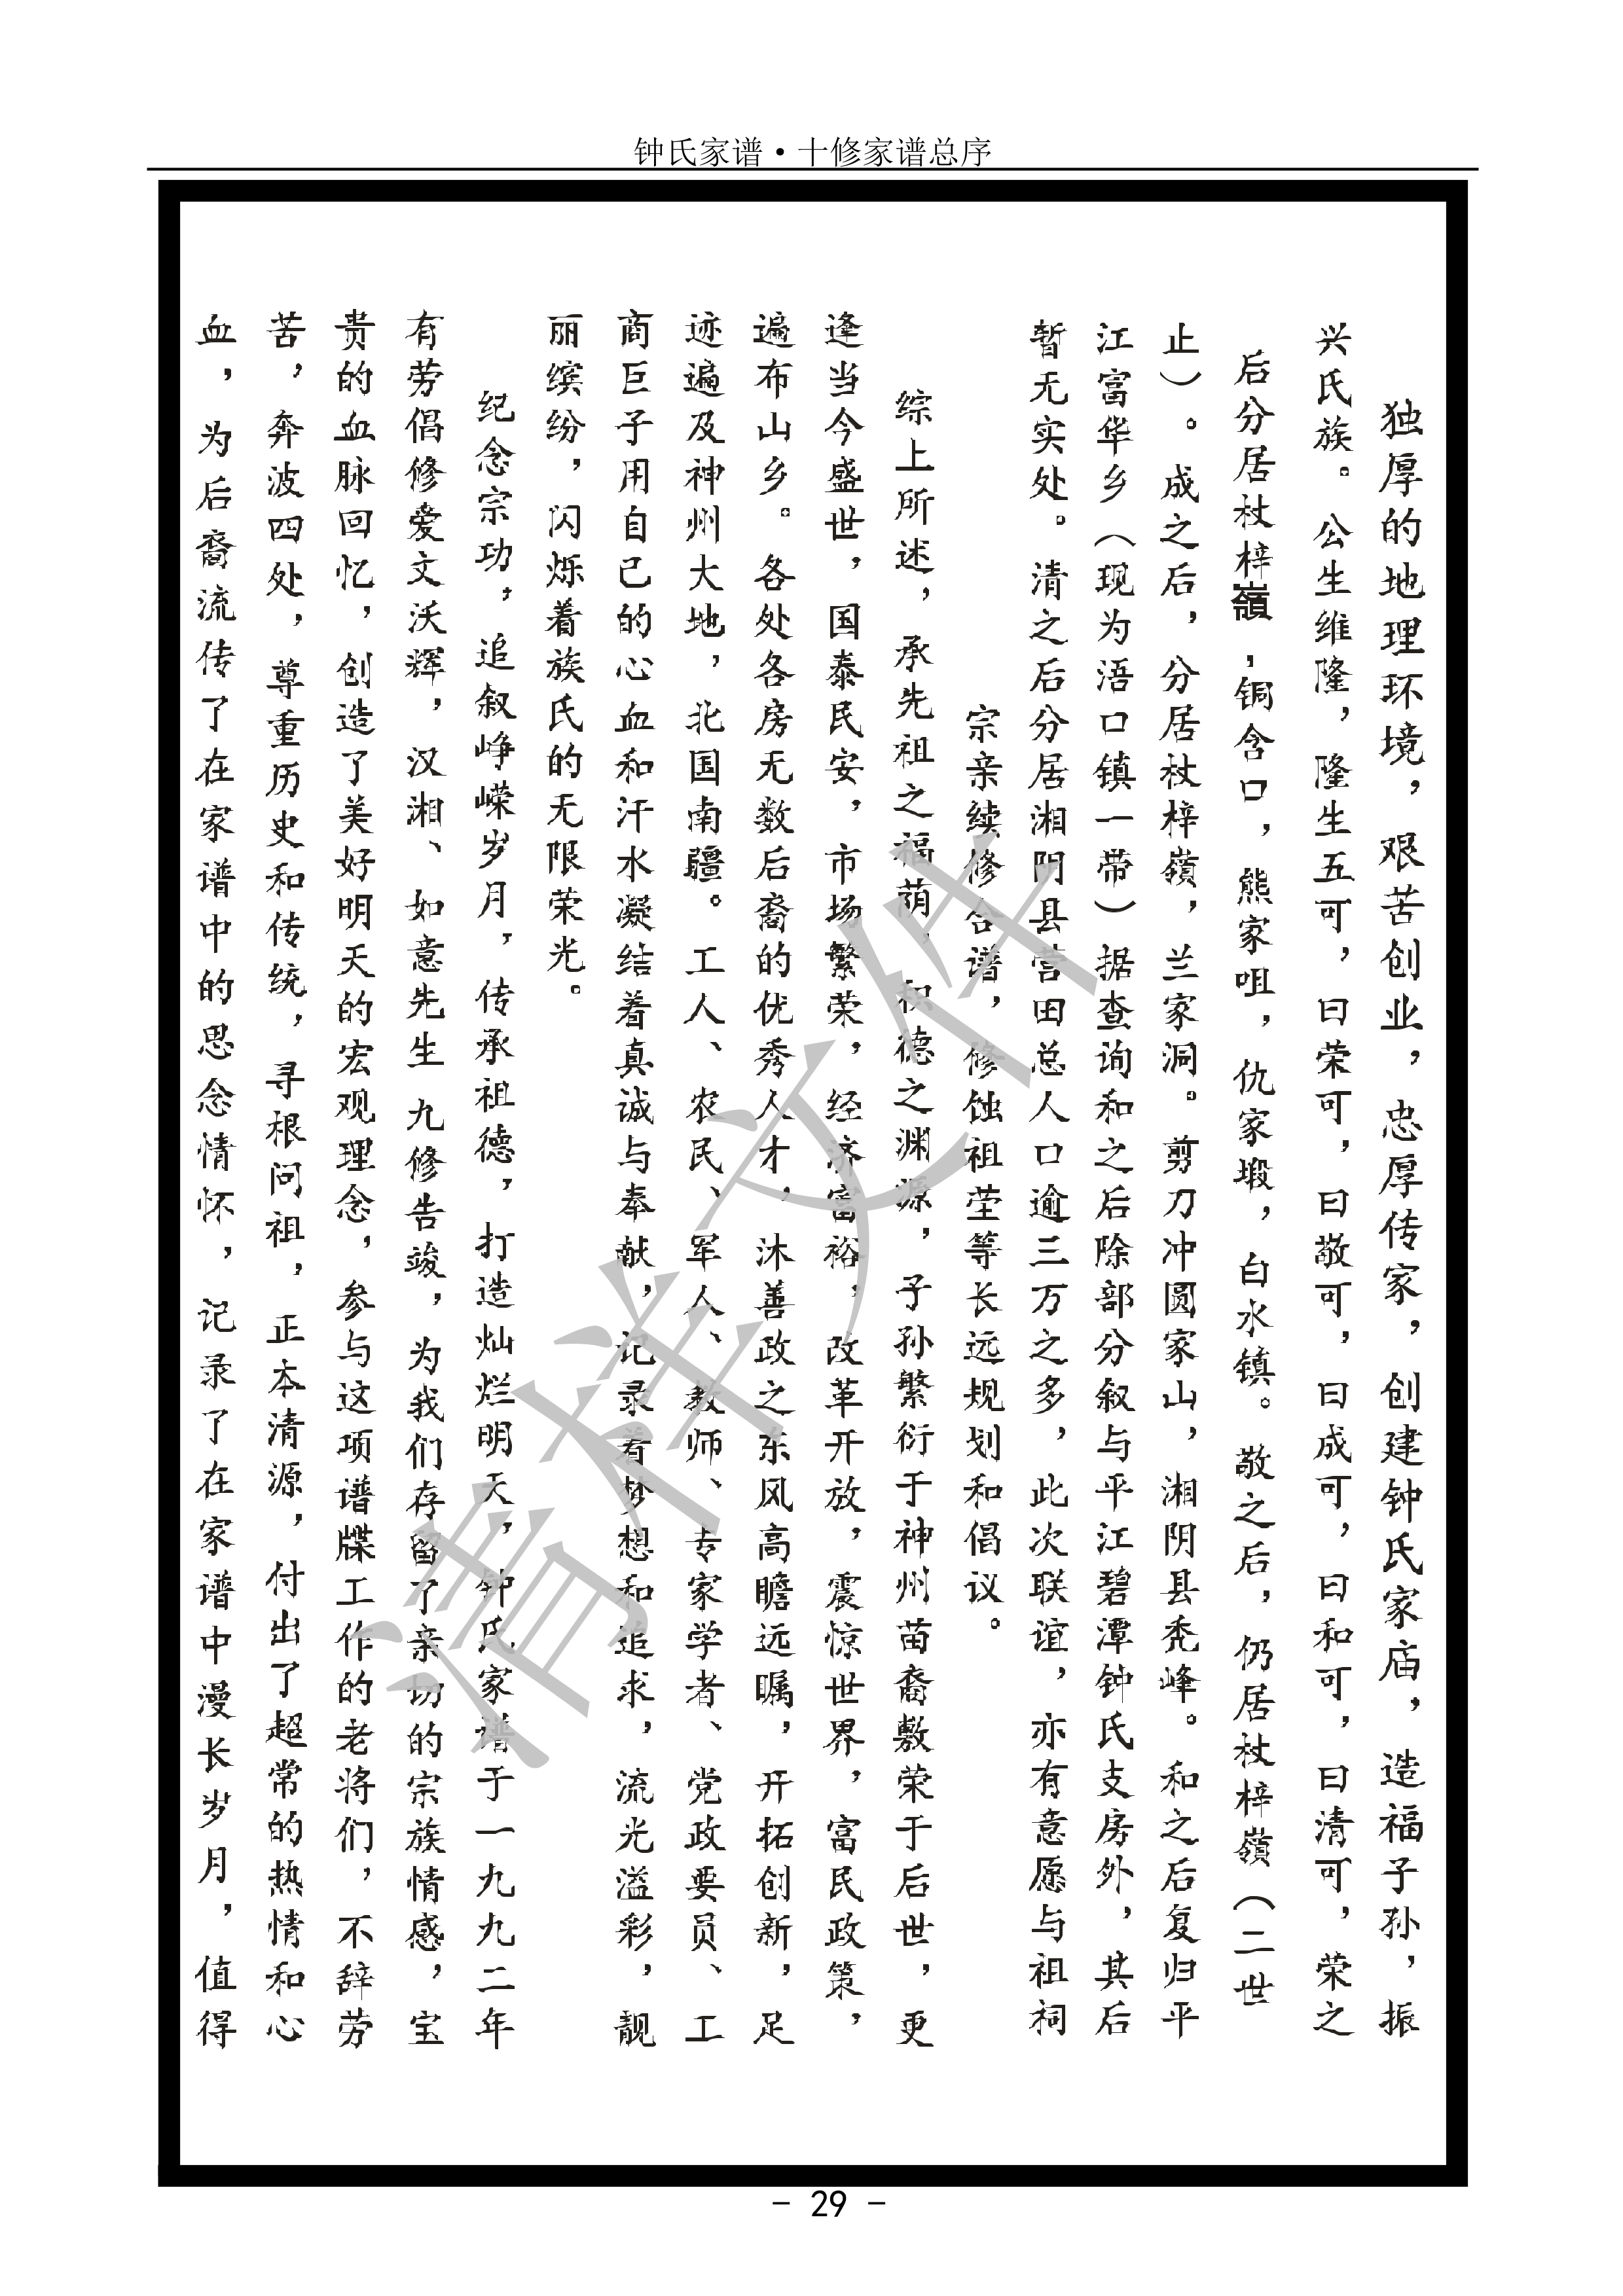 钟氏家谱·十修家谱总序
独厚的地理环境，艰苦创业，忠厚传家，创建钟氏家庙，造福子孙，振
兴氏族。公生维隆，隆生五可，曰荣可，曰敬可，曰成可，曰和可，曰清可，荣之
后分居杖梓嶺，铜含口，熊家咀，仇家塅，白水镇。敬之后，仍居杖梓嶺（二世
止）。成之后，分居杖梓嶺，兰家洞。剪刀冲圆家山，湘阴县秃峰。和之后复归平
江富华乡（现为浯口镇一带）据查询和之后除部分叙与平江碧潭钟氏支房外，其后
暂无实处。清之后分居湘阴县营田总人口逾三万之多，此次联谊，亦有意愿与祖祠
宗亲续修合谱，修蚀祖茔等长远规划和倡议。
综上所述，承先祖之福荫，积德之渊源，子孙繁衍于神州苗裔敷荣于后世，更
逢当今盛世，国泰民安，市场繁荣，经济富裕，改革开放，震惊世界，富民政策，
遍布山乡。各处各房无数后裔的优秀人才，沐善政之东风高瞻远瞩，开拓创新，足
迹遍及神州大地，北国南疆。工人、农民、军人、教师、专家学者、党政要员、工
商巨子用自己的心血和汗水凝结着真诚与奉献，记录着梦想和追求，流光溢彩，靓
丽缤纷，闪烁着族氏的无限荣光。
纪念宗功，追叙峥嵘岁月，传承祖德，打造灿烂明天，钟氏家谱于一九九二年
有劳倡修爱文沃辉，汉湘、如意先生九修告竣，为我们存留了亲切的宗族情感，宝
贵的血脉回忆，创造了美好明天的宏观理念，参与这项谱牒工作的老将们，不辞劳
苦，奔波四处，尊重历史和传统，寻根问祖，正本清源，付出了超常的热情和心
血，为后裔流传了在家谱中的思念情怀，记录了在家谱中漫长岁月，值得
清样文件
- 29 -